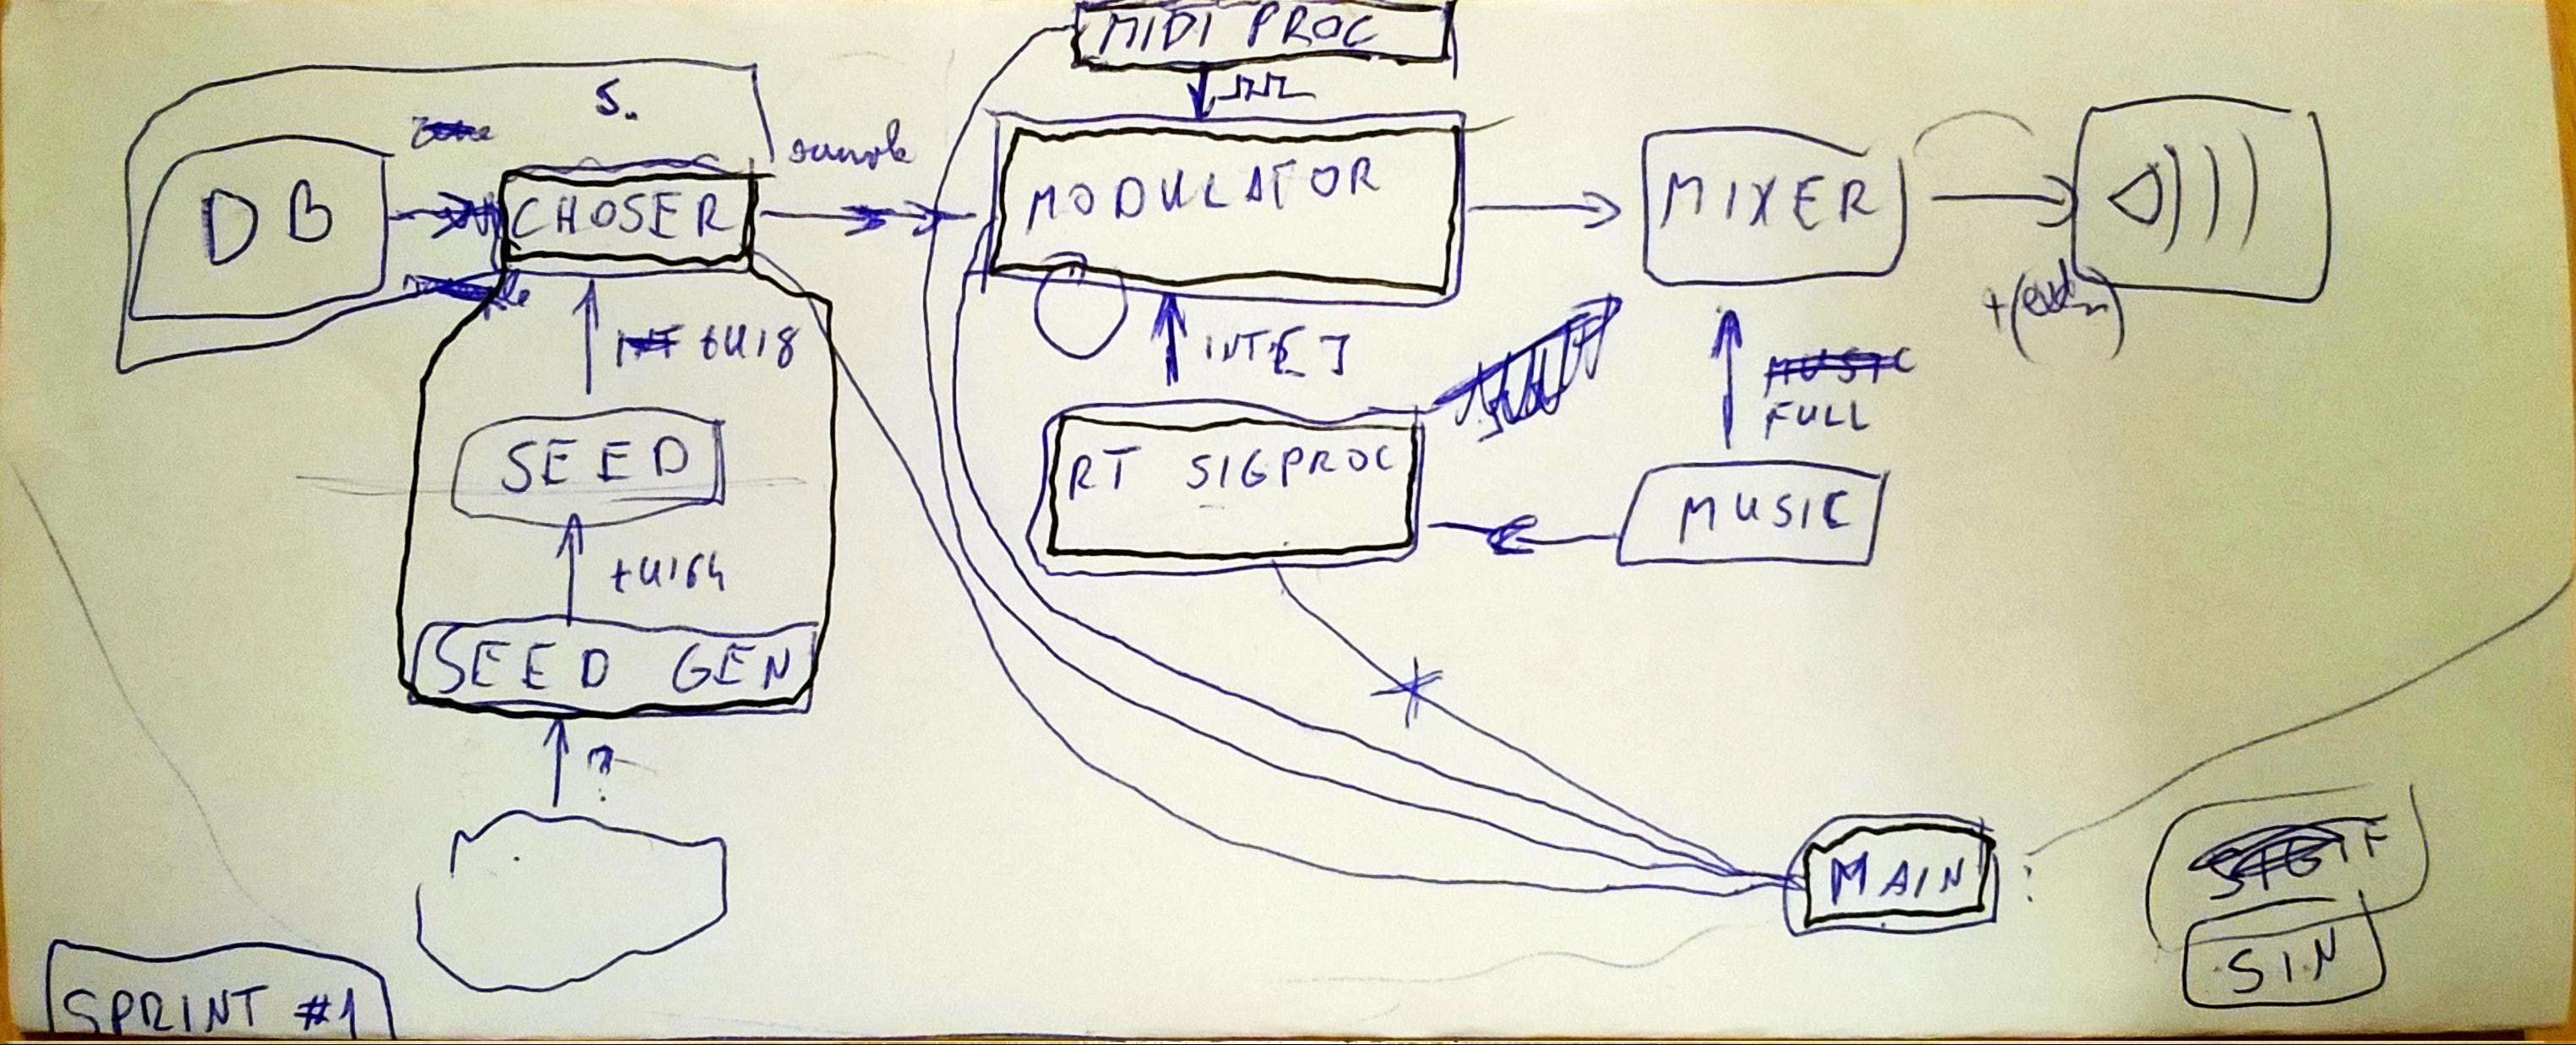 MIDI PROC
S..
DB
CHOSER
MODULATOR
MIXER
tUI8
INT[]
FULL
SEED
RT SIGPROC
MUSIC
tUI64
SEED GEN
?
MAIN
SIN
SPRINT #1